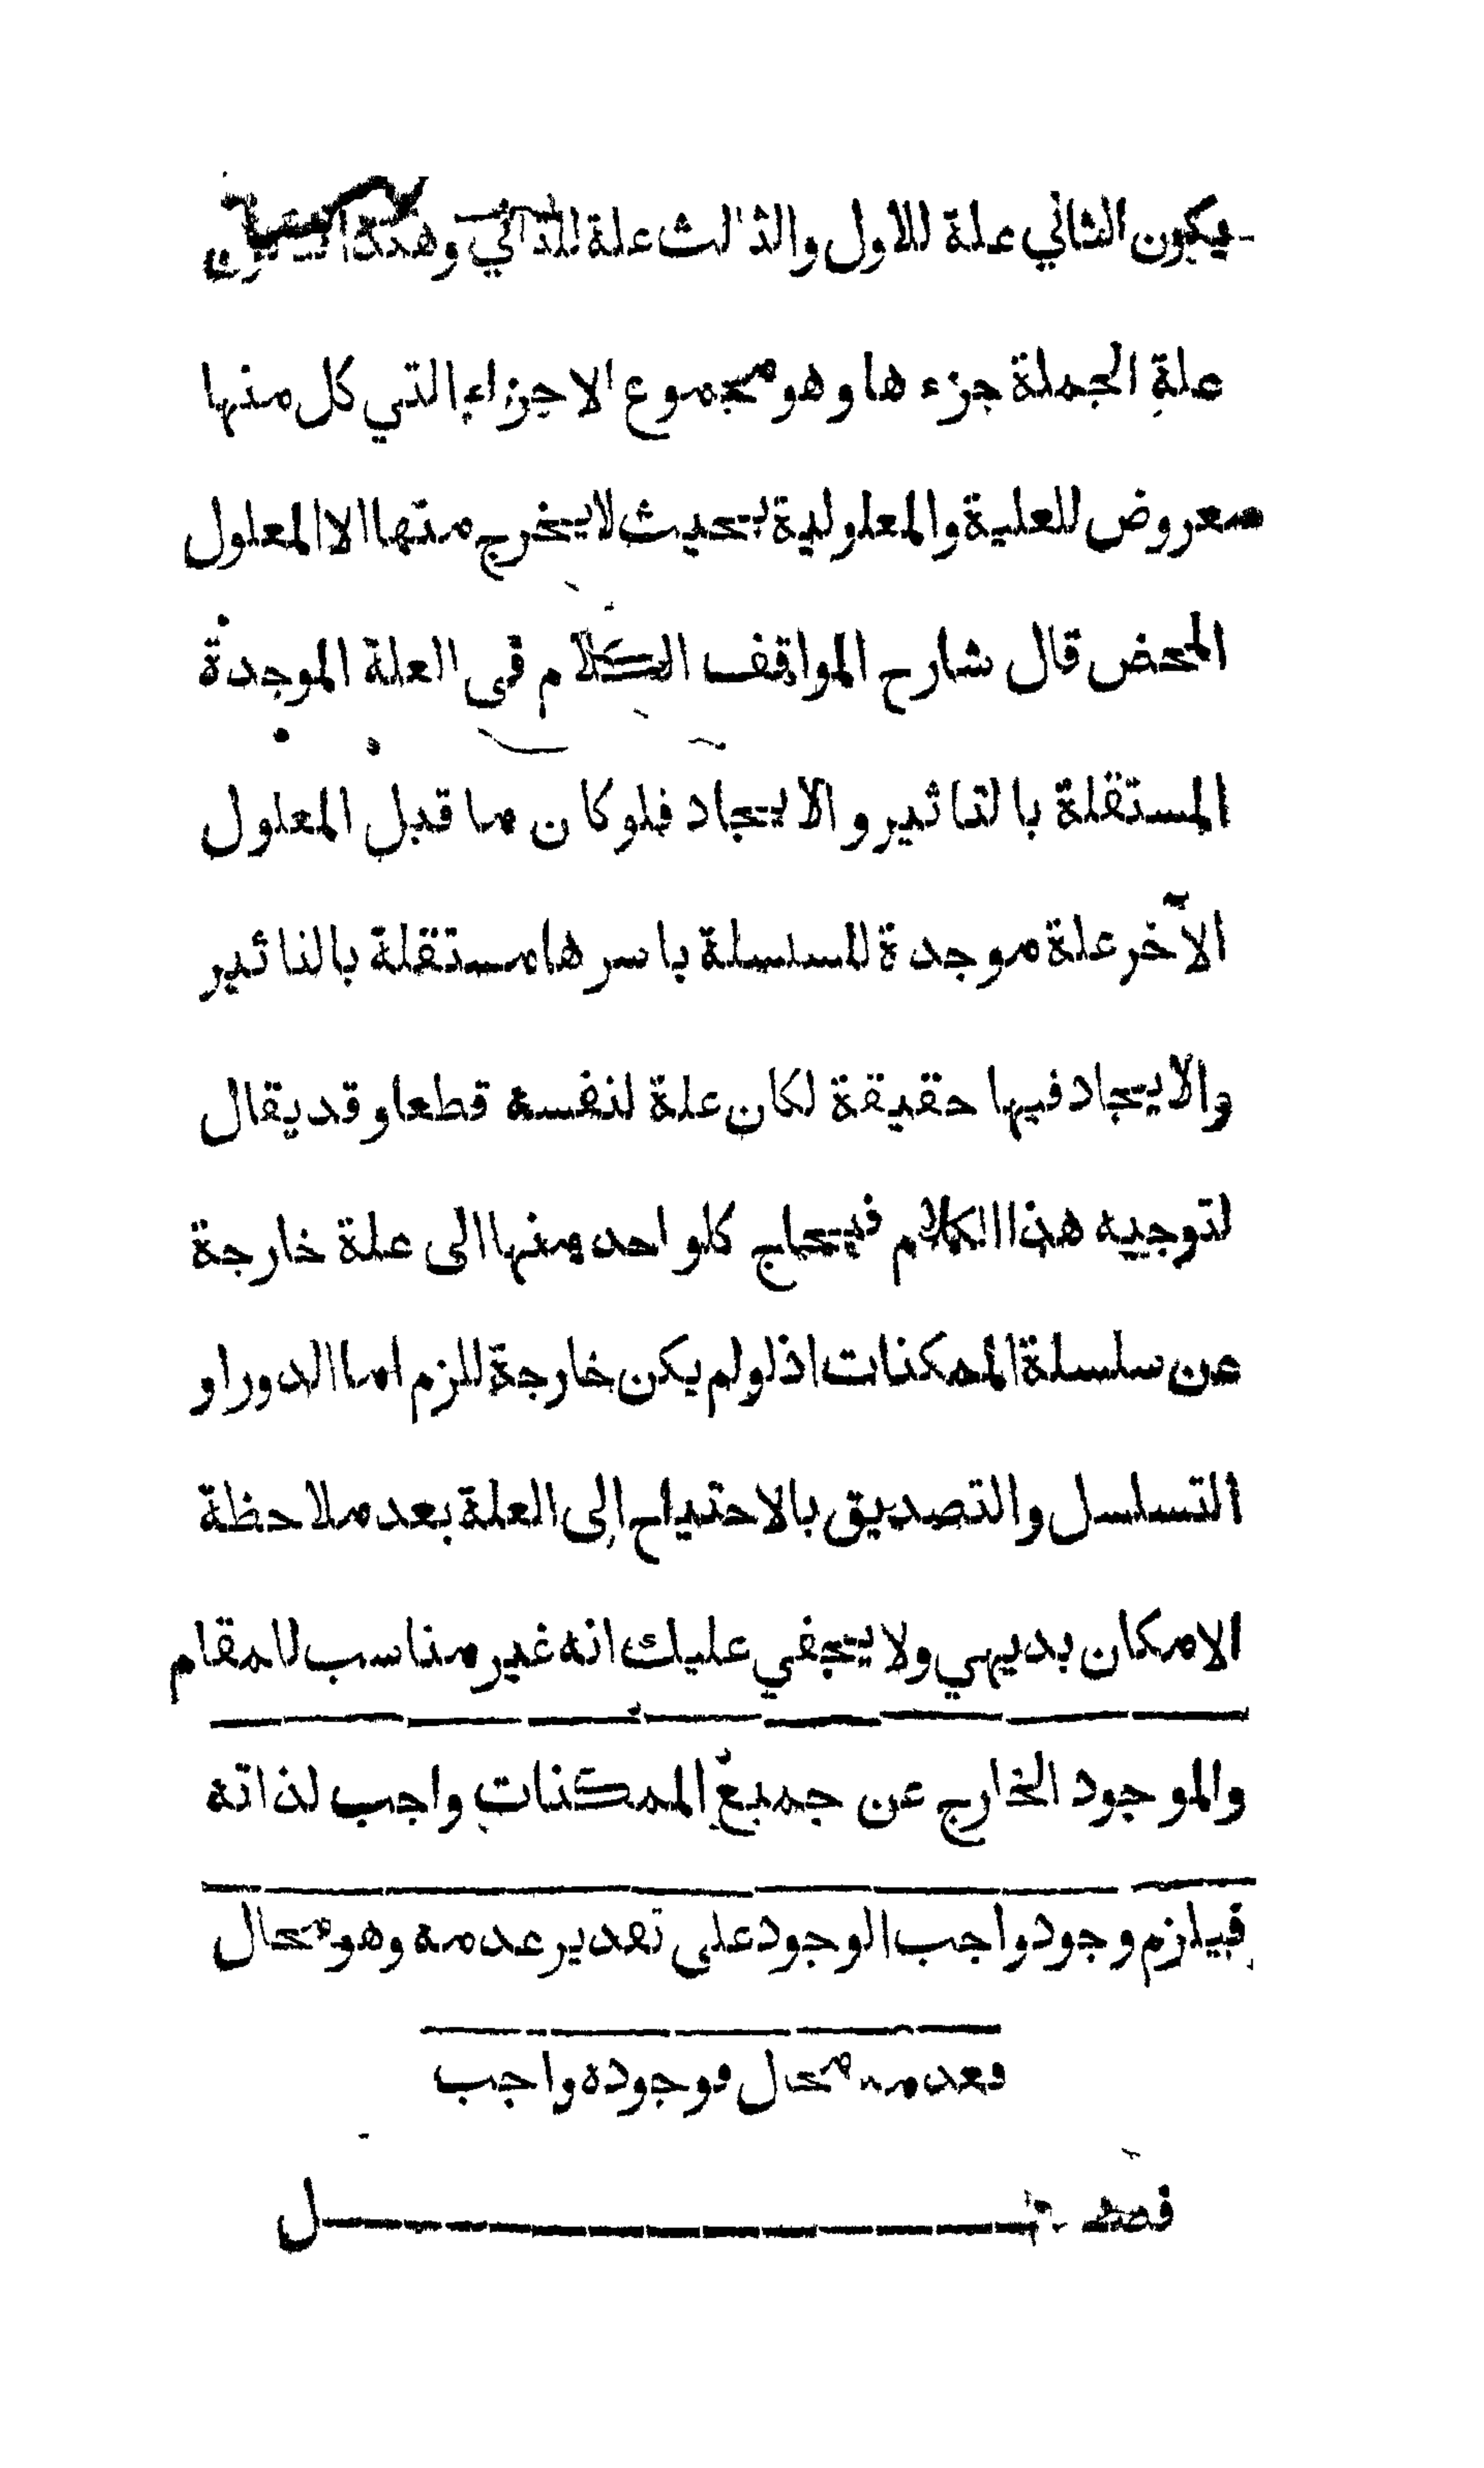 يكون الثاني علة للاول والثالث علة للثاني وهكذا
علة الجملة جزءها وهو مجموع الاجزاء التي كل منها
معروض للعلية والمعلولية بحيث لا يخرج منها الا المعلول
المحض قال شارح المواقف الكلام فى العلة الموجدة
المستقلة بالتاثير والايجاد فلو كان ما قبل المعلول
الآخر علة موجدة للسلسلة باسرها مستقلة بالتاثير
والايجاد فيها حقيقة لكان علة لنفسه قطعا وقد يقال
لتوجيه هذا الكلام فيحتاج كلواحد منها الى علة خارجة
عن سلسلة الممكنات اذ لو لم يكن خارجة للزم اما الدور او
التسلسل والتصديق بالاحتياج إلى العلة بعد ملاحظة
الامكان بديهي ولا يخفي عليك انه غير مناسب للمقام
والموجود الخارج عن جميع الممكنات واجب لذاته
فيلزم وجود واجب الوجود على تقدير عدمه وهو محال
فعدمه محال فوجوده واجب
فصـل